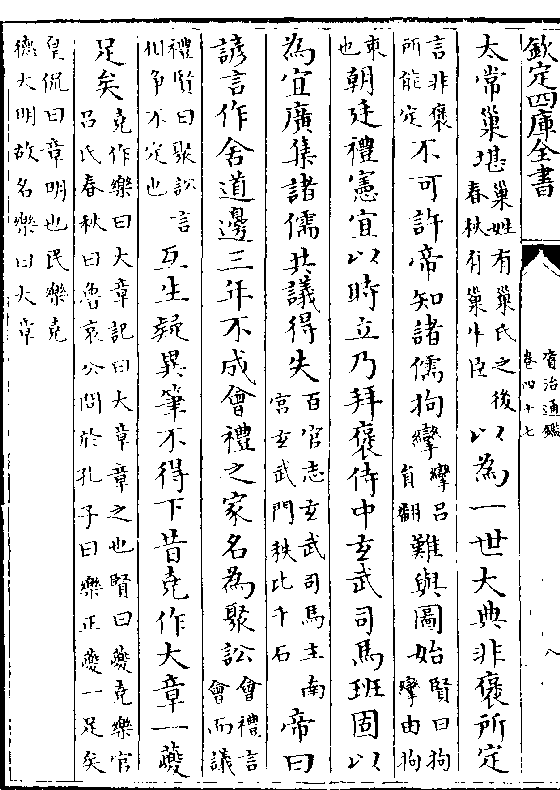 欽定四庫全書
資治通鑑
卷四十七
八
太常巢堪巢姓有巢氏之後春秋有巢牛臣以為一世大典非褒所定
言非褒所能定不可許帝知諸儒拘攣攣呂員翻難與圖始賢曰拘攣由拘
束也朝廷禮憲宜以時立乃拜褒侍中玄武司馬班固以
為宜廣集諸儒共議得失百官志玄武司馬主南宮玄武門秩比千石帝曰
諺言作舍道邊三年不成會禮之家名為聚訟會禮言會而議
禮賢曰聚訟言相争不定也互生疑異筆不得下昔堯作大章一夔
足矣堯作樂曰大章記曰大章章之也賢曰夔堯樂官呂氏春秋曰魯哀公問於孔子曰樂正夔一足矣
皇侃曰章明也民樂堯德大明故名樂曰大章